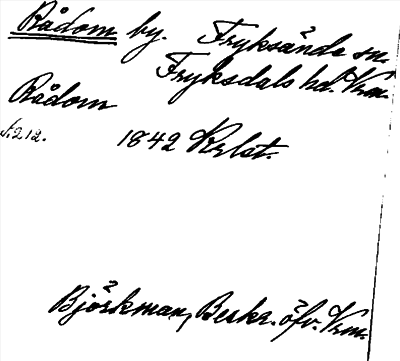 Rådom by. Fryksände sn.
Fryksdals hd. Vrm.
Rådom
s. 212. 1842 Krlst.
Björkman, Beskr. öfv. Vrm.